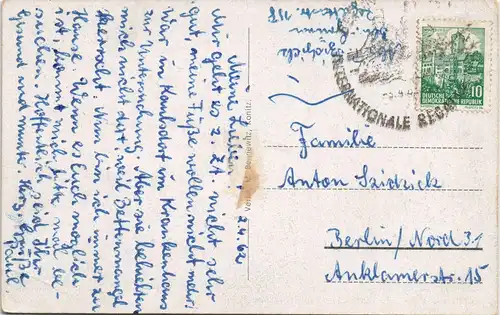 Meine Lieben! 2.4.62
Mir geht es z. Zt. nicht sehr
gut meine Füße wollen nicht mehr.
War in Kaulsdorf im Krankenhaus
zur Untersuchung. Aber sie behielten
mich nicht dort weil Bettenmangel
herrscht. Nun bin ich immer zu
Hause. Wenn es Euch möglich
ist, kommt mich bitte mal be-
suchen. Hoffentlich seid Ihr
gesund und munter. Herzl. Grüße
Paul
Verlag Bennewitz, Konitz
INTERNATIONALE
10
DEUTSCHE
DEMOKRATISCHE REPUBLIK
Familie
Anton
Berlin/Nord 31
Anklamerstr. 15